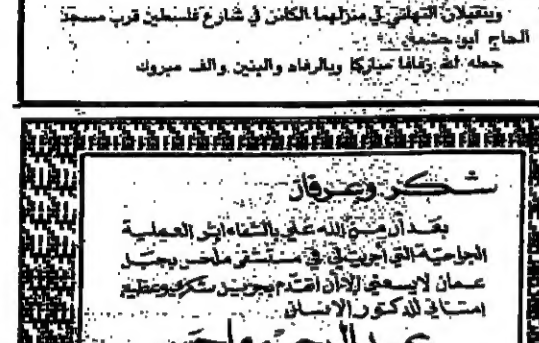 ويتقبلان التهاني في منزلهما الكائن في شارع فلسطين قرب مسجد
الحاج ابو جشمة
جعله الله زفافا مباركا وبالرفاه والبنين والف مبروك
شكر وعرفان
بعد أن من الله علي بالشفاء إثر العملية
الجراحية التي أجريت لي في مستشفى ملحس بجبل
عمان لايسعني إلا أن أتقدم بجزيل شكري وعظيم
امتناني للدكتور الانساني
عبد الرحمن ملحس